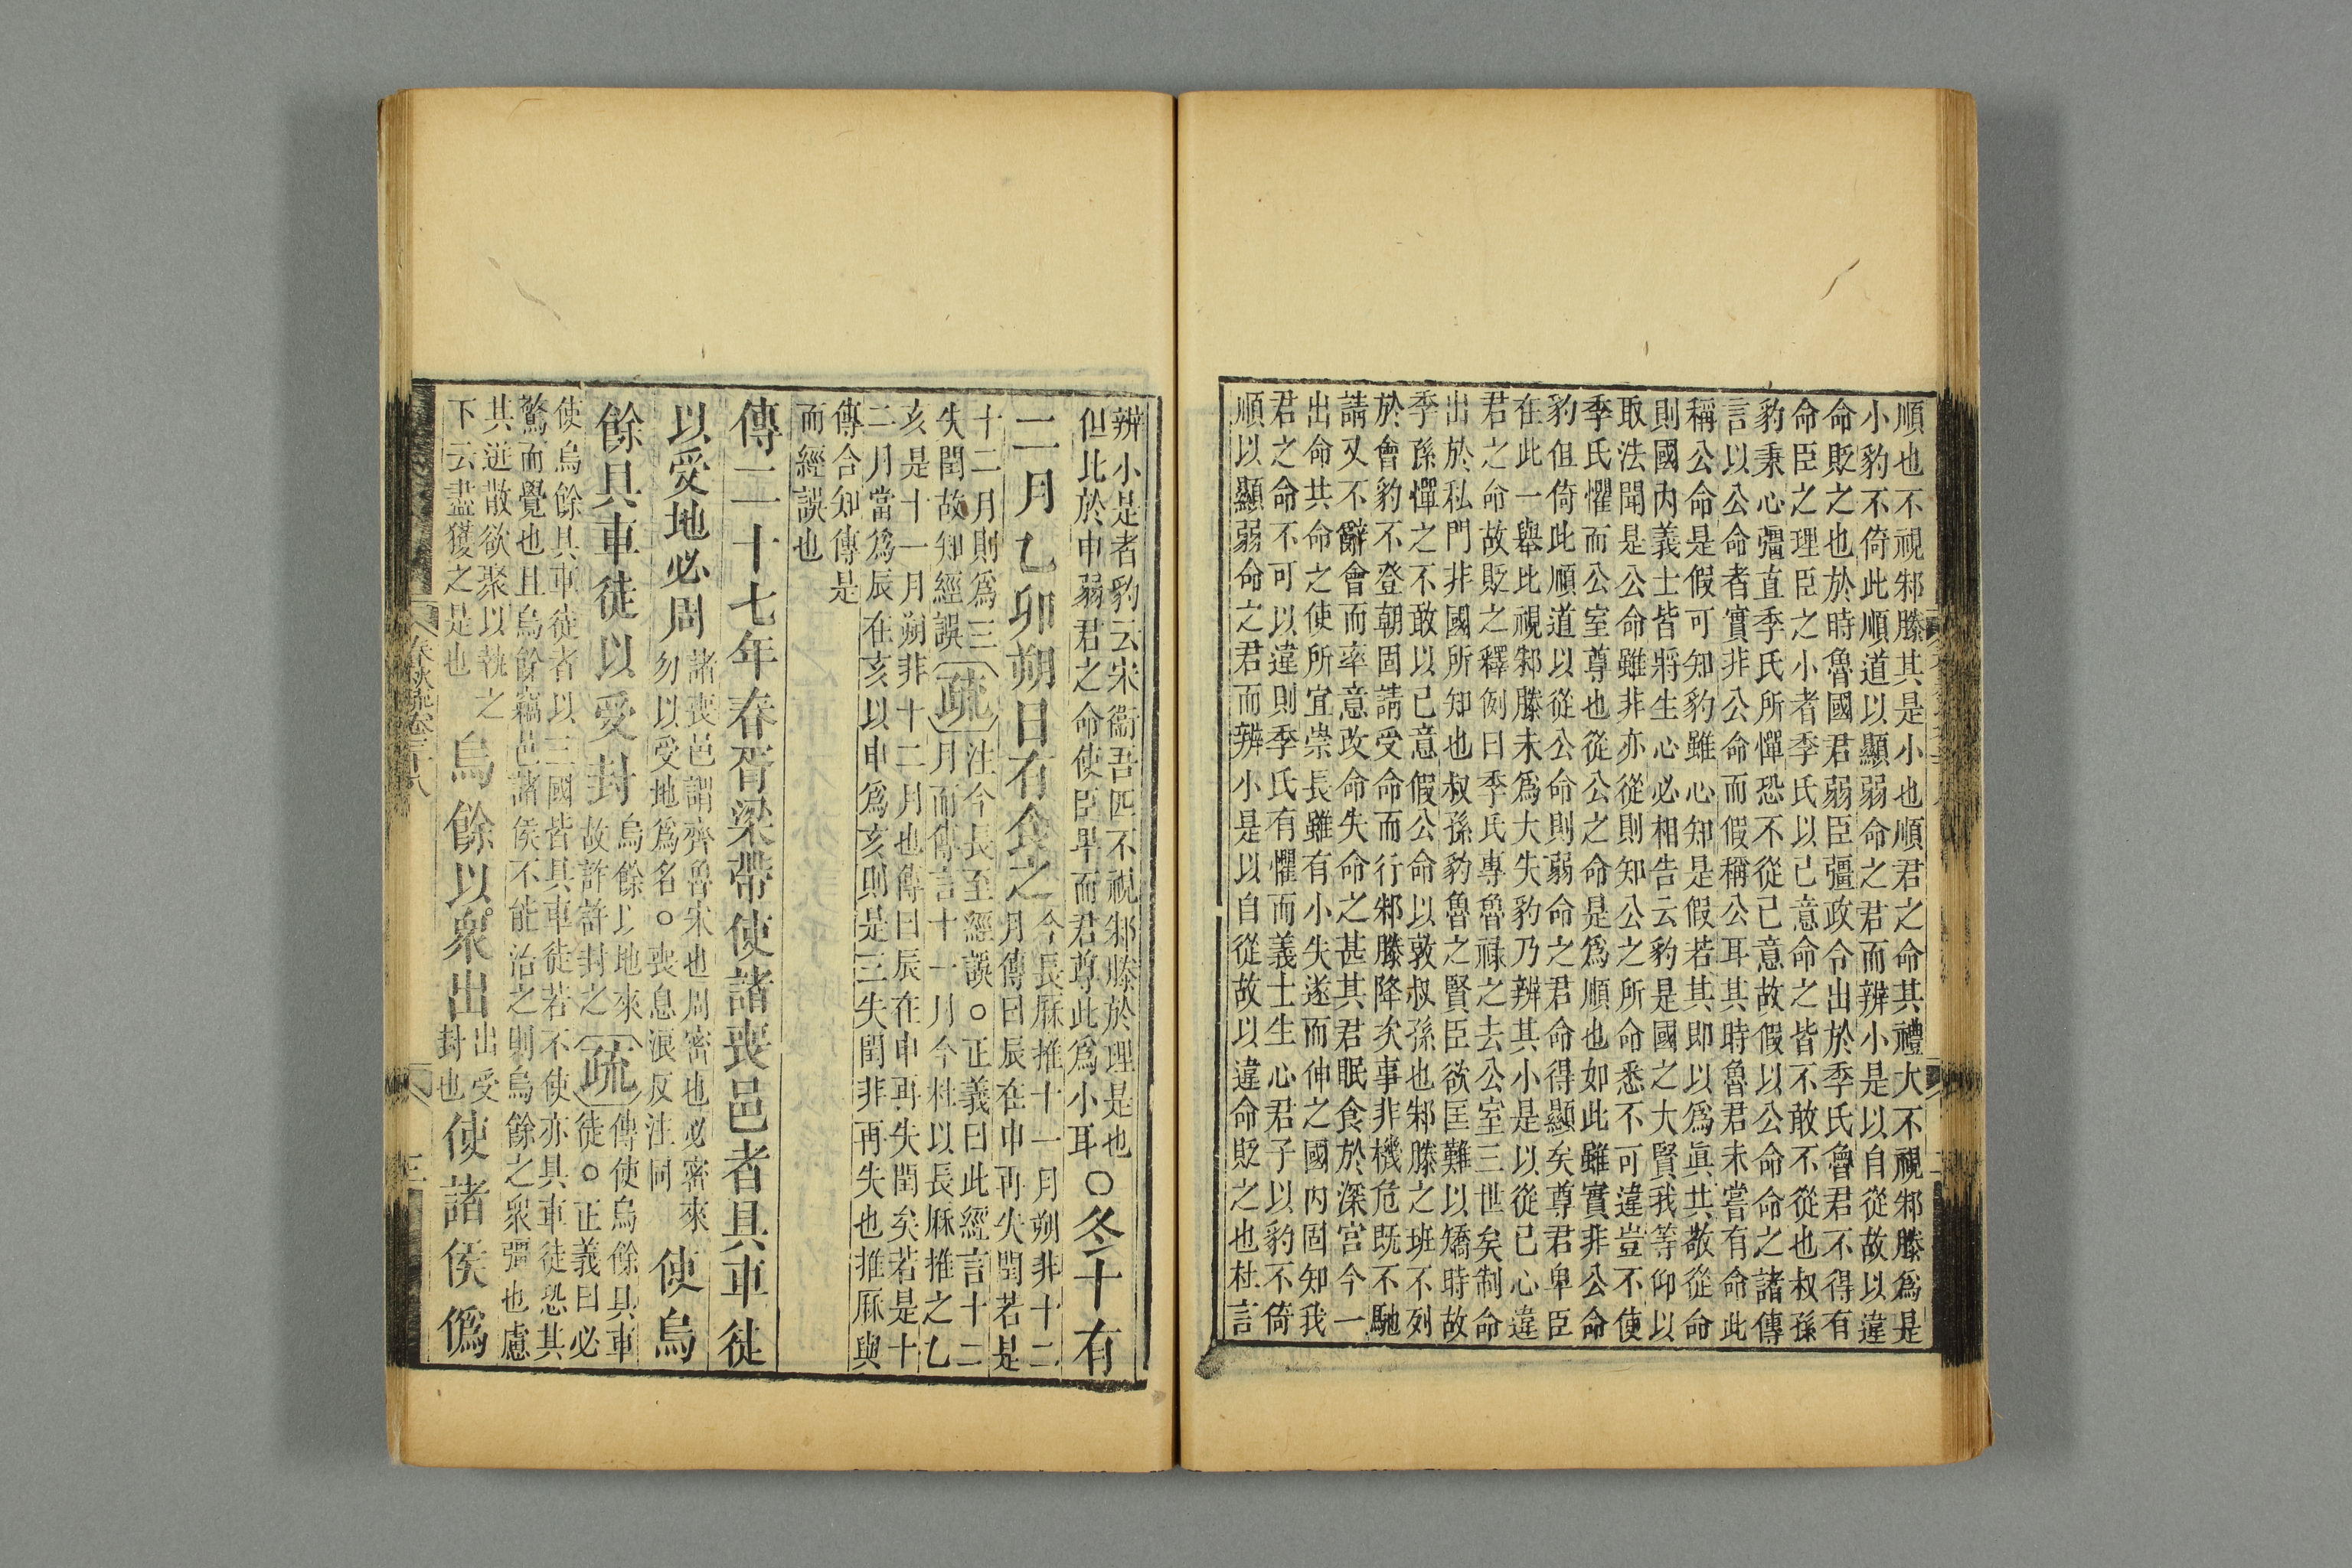 順也不視邾滕其是小也順君之命其禮大不視邾滕爲是
小豹不倚此順道以顯弱命之君而辨小是以自從故以違
命貶之也於時魯國君弱臣彊政令出於季氏魯君不得有
命臣之理臣之小者季氏以己意命之皆不敢不從也叔孫
豹秉心彊直季氏所憚恐不從己意故假以公命命之諸傳
言以公命者實非公命而假稱公耳其時魯君未嘗有命此
稱公命是假可知豹雖心知是假若其即以爲眞共敬從命
則國內義士皆將生心必相告云豹是國之大賢我等仰以
取法聞是公命雖非亦從則知公之所命悉不可違豈不使
季氏懼而公室尊也從公之命是爲順也如此雖實非公命
豹但倚此順道以從公命則弱命之君命得顯矣尊君卑臣
在此一舉比視邾滕未爲大失豹乃辨其小是以從己心違
君之命故貶之釋例曰季氏專魯祿之去公室三世矣制命
出於私門非國所知也叔孫豹魯之賢臣欲匡難以矯時故
季孫憚之不敢以己意假公命以敦叔孫也邾滕之班不列
於會豹不登朝固請受命而行邾滕降矣事非機危既不馳
請又不辭會而率意改命失命之甚其君眠食於深宮今一
出命共命之使所宜崇長雖有小失遂而伸之國內固知我
君之命不可以違則季氏有懼而義士生心君子以豹不倚
順以顯弱命之君而辨小是以自從故以違命貶之也杜言
辨小是者豹云宋衞吾匹不視邾滕於理是也
但比於申弱君之命使臣畢而君尊此爲小耳
○冬十有
二月乙卯朔日有食之
今長厤推十一月朔非十二
月傳曰辰在申再失閏若是
十二月則爲三
失閏故知經誤
疏
注今長至經誤○正義曰此經言十二
月而傳言十一月今杜以長厤推之乙
亥是十一月朔非十二月也傳曰辰在申再失閏矣若是十
二月當爲辰在亥以申爲亥則是三失閏非再失也推厤與
傳合知傳是
而經誤也
傳二十七年春胥梁帶使諸喪邑者具車徒
以受地必周
諸喪邑謂齊魯宋也周密也必密來
勿以受地爲名○喪息浪反注同
使烏
餘具車徒以受封
烏餘以地來
故詐許封之
疏
傳使烏餘具車
徒○正義曰必
使烏餘具車徒者以三國皆具車徒若不使亦具車徒恐其
驚而覺也且烏餘竊邑諸侯不能治之則烏餘之衆彊也慮
其迸散欲聚以執之
下云盡獲之是也
烏餘以衆出
出受
封也
使諸侯僞
春秋疏卷三十八
三